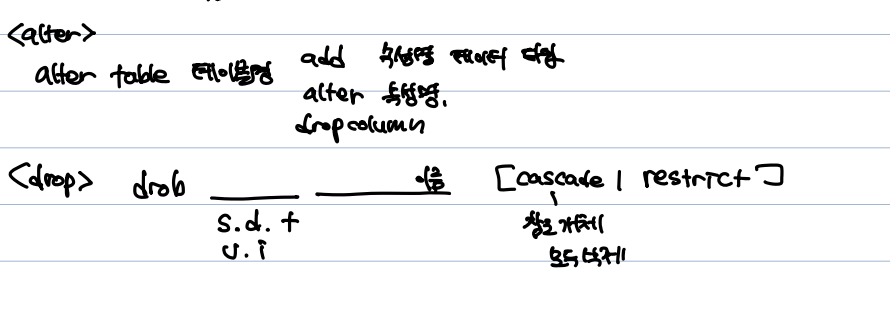 <alter>
alter table 테이블명 add 속성명 데이터 타입
alter 속성명.
drop column
<drop> drob ______ ______ 이름 [cascade | restrict]
s.d.t
v.i
참조개체
모두삭제